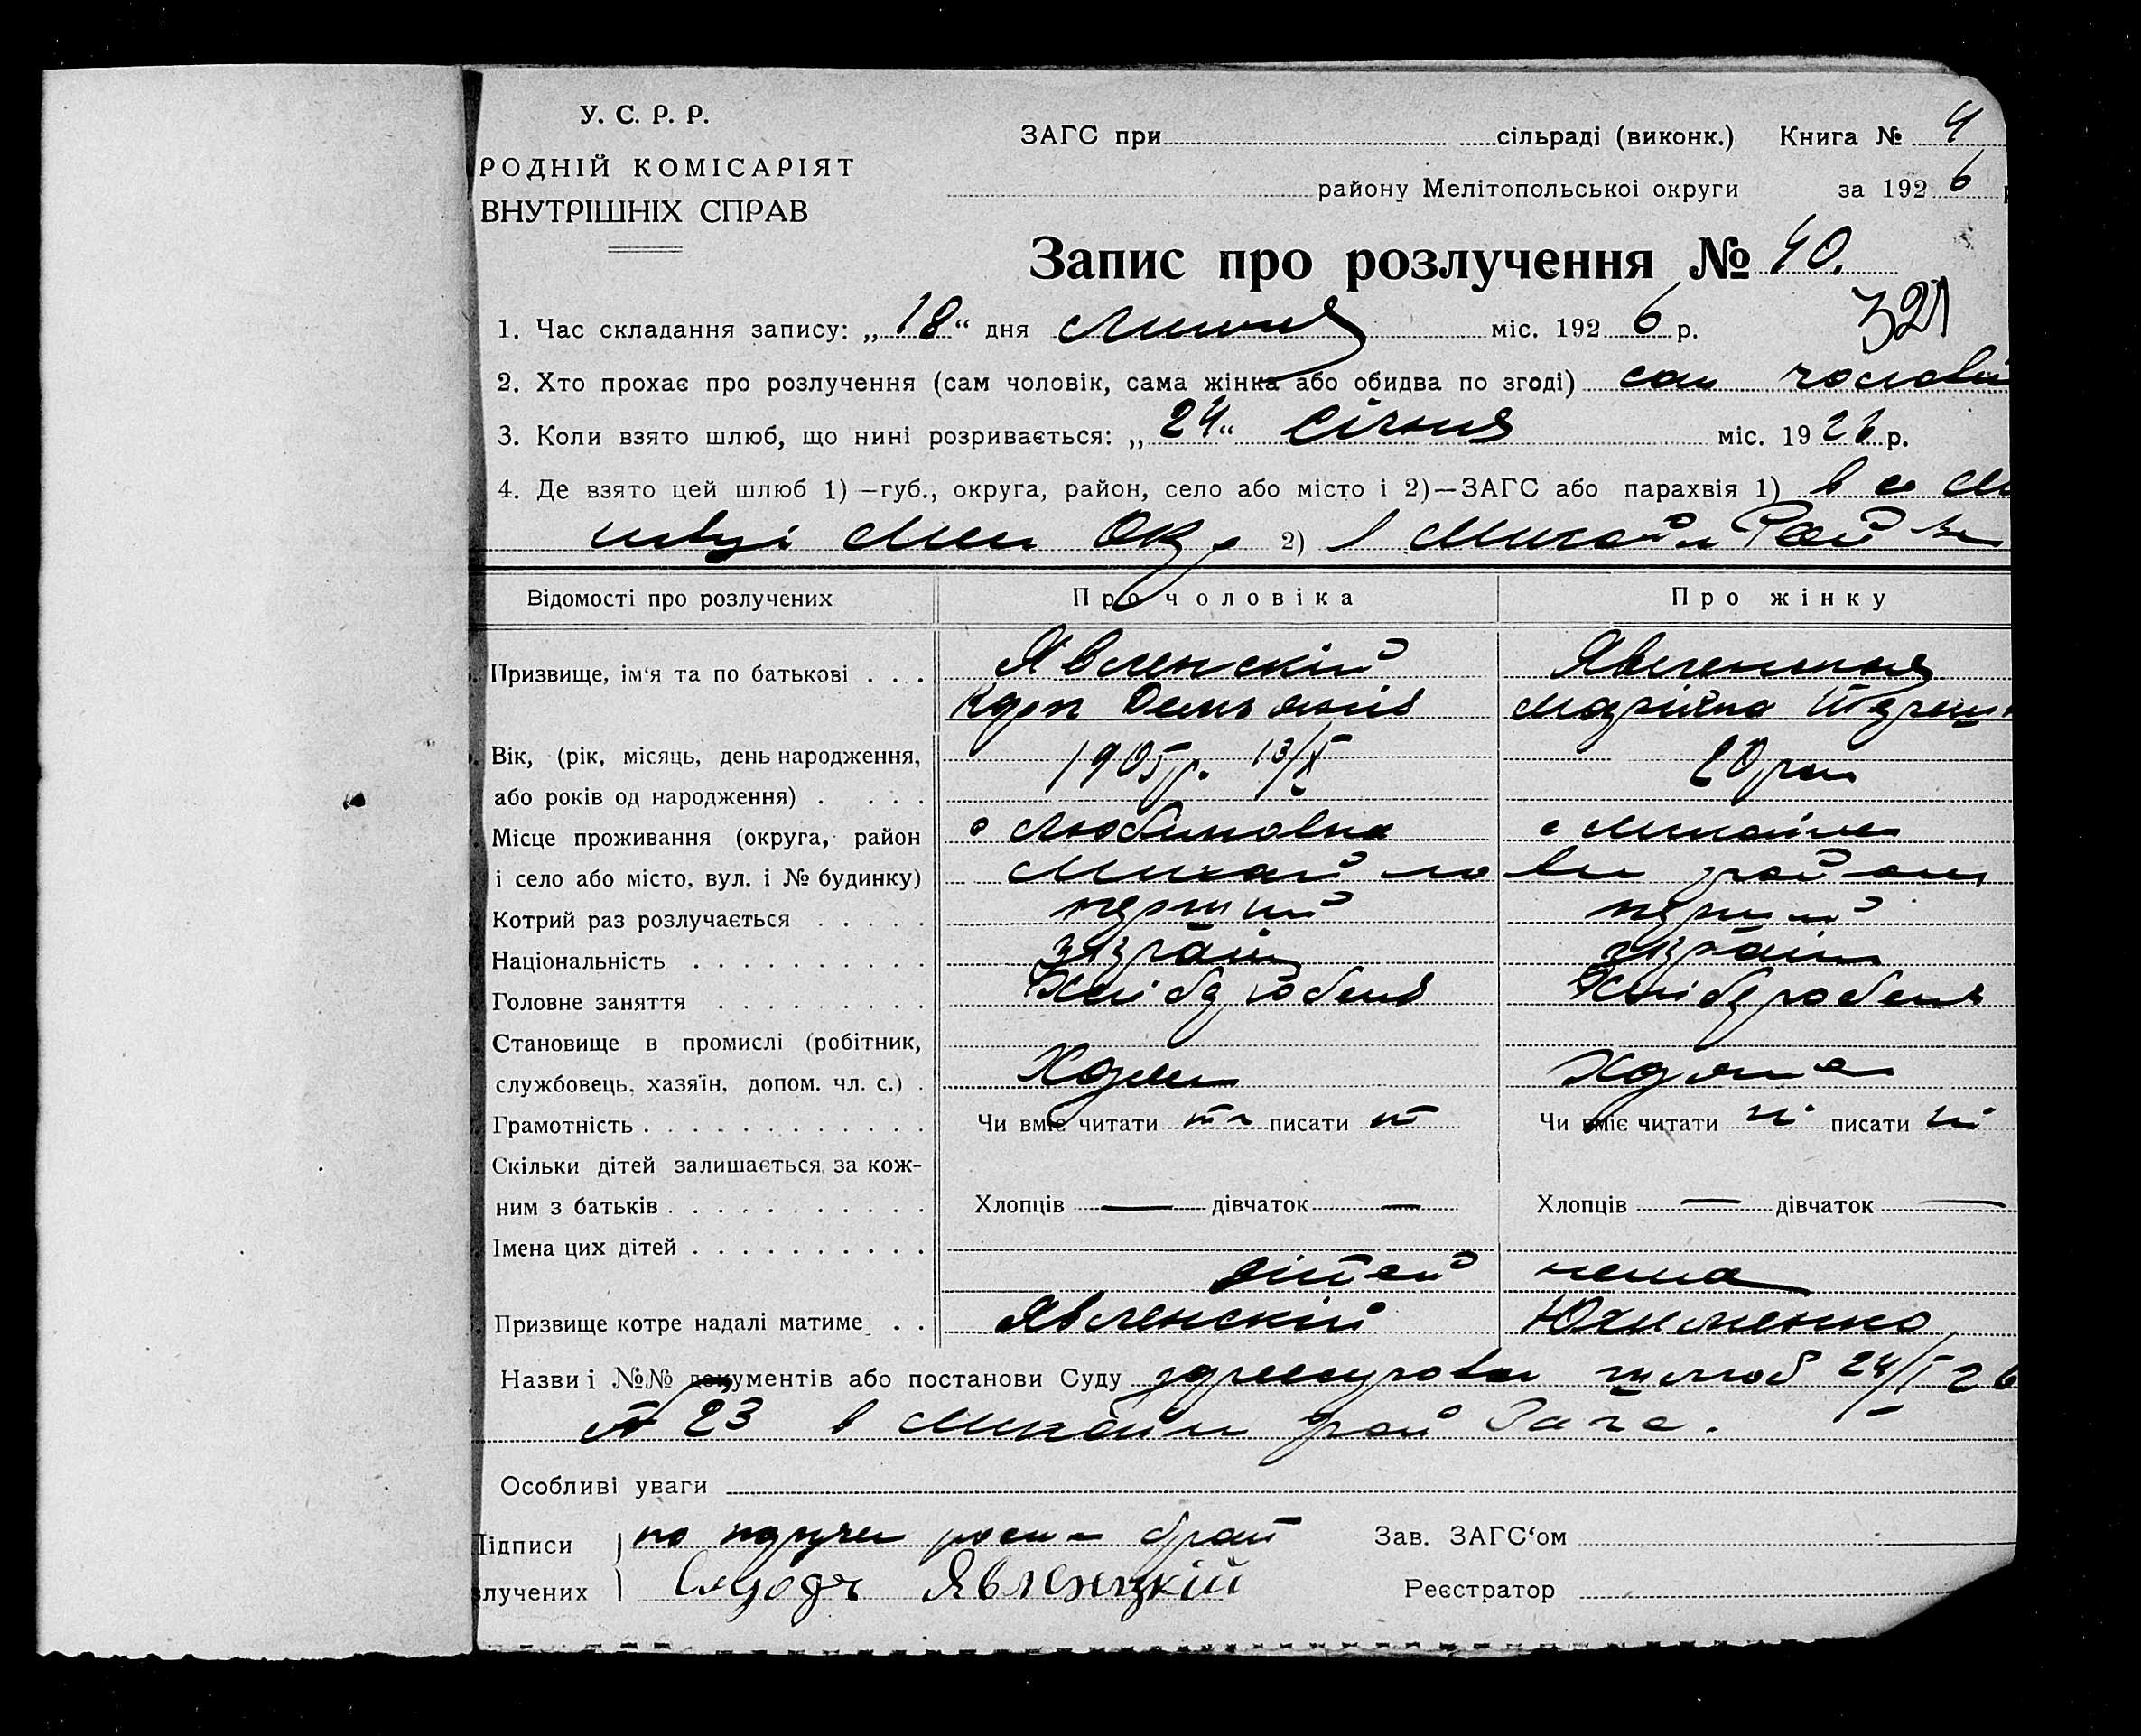 У. С. Р. Р.
РОДНІЙ КОМІСАРІЯТ
ВНУТРІШНІХ СПРАВ
ЗАГС при сільраді (виконк.) Книга № 4
району Мелітопольськоі округи за 1926
Запис про розлучення № 40.
321
1. Час складання запису: „18“ дня міс. 1926 р.
2. Хто прохає про розлучення (сам чоловік, сама жінка або обидва по згоді) сам чоловік
3. Коли взято шлюб, що нині розривається: „24“ Січня міс. 1926 р.
4. Де взято цей шлюб 1) —губ., округа, район, село або місто і 2)—ЗАГС або парахвія 1) в с. Ми
Мел Окр 2) Михайл Рай
Відомості про розлучених Про чоловіка Про жінку
Призвище, ім‘я та по батькові . . . Явленскій
Вік, (рік, місяць, день народження, 1905 р. 13/X 20 рок
або років од народження) . . . .
Місце проживання (округа, район с Любимовка с Михайлів
і село або місто, вул. і № будинку) Михайло вск район
Котрий раз розлучається . . . . . перший перший
Національність . . . . . . . . . . україн україн
Головне заняття . . . . . . . . . Хлібороб Хлібороб
Становище в промислі (робітник,
службовець, хазяїн, допом. чл. с.) .
Грамотність . . . . . . . . . . . . Чи вміє читати писати Чи вміє читати ні писати ні
Скільки дітей залишається за кож-
ним з батьків . . . . . . . . . . . Хлопців — дівчаток — Хлопців — дівчаток —
Імена цих дітей . . . . . . . . . .
дітей нема
Призвище котре надалі матиме . . Явленскій Юхименко
Назви і №№ документів або постанови Суду шлюб 24/I 26
№ 23 в Михайл рай Загс.
Особливі уваги
Підписи по брат
злучених Явленскій
Зав. ЗАГС‘ом
Реєстратор